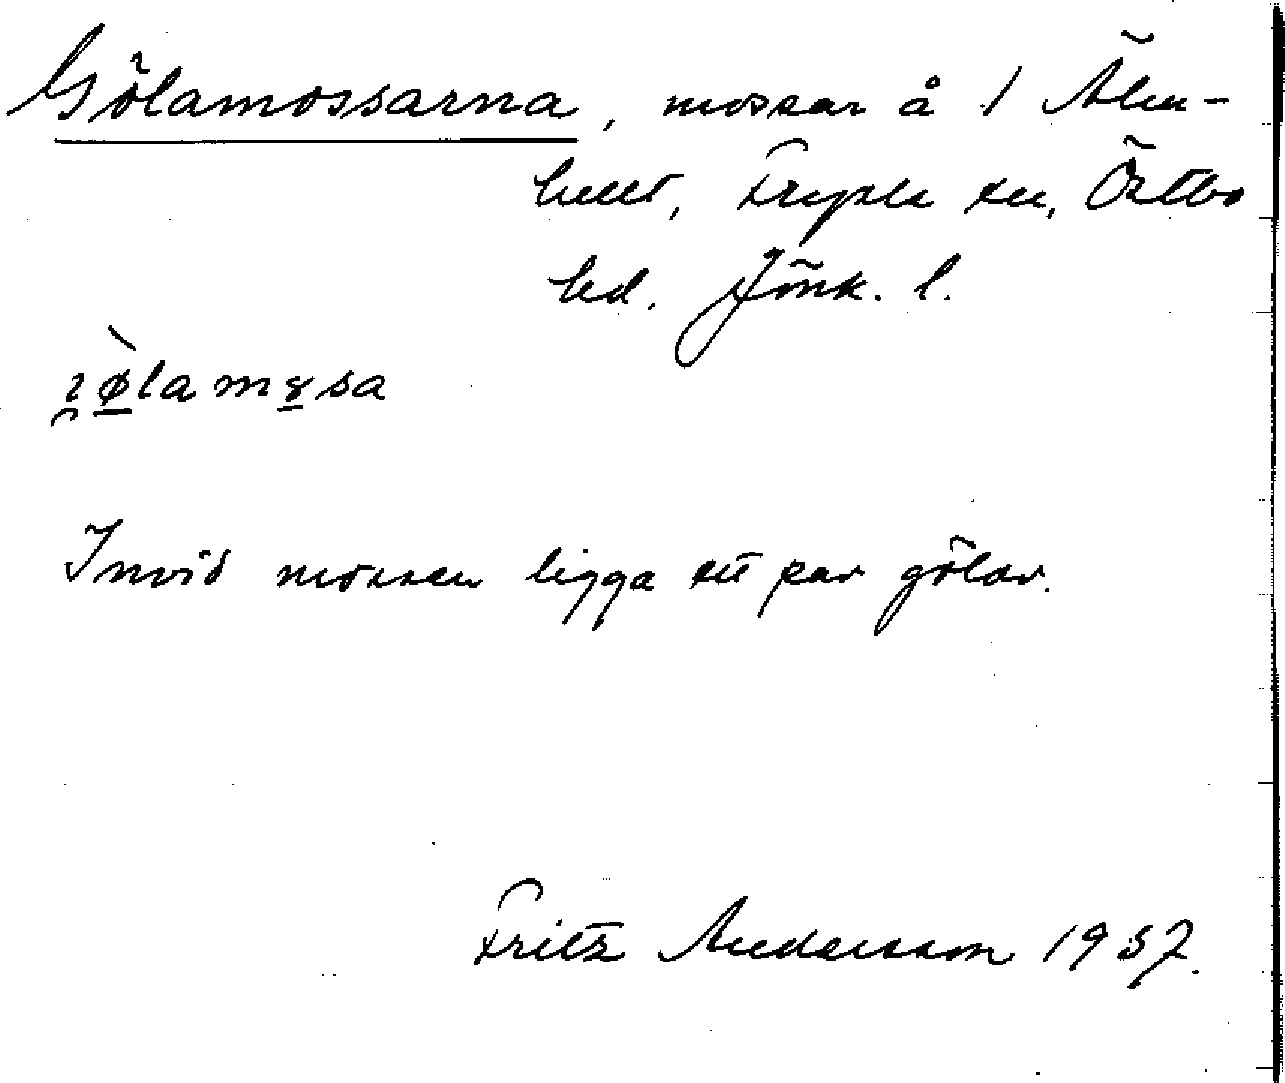 Gölamossarna, mossar å 1 Älm-
hult, Fryele sn, Östbo
hd. Jönk. l.
i̯ø̀la mɤsa
Invid mossen ligga ett par gölar.
Fritz Andersson 1937.